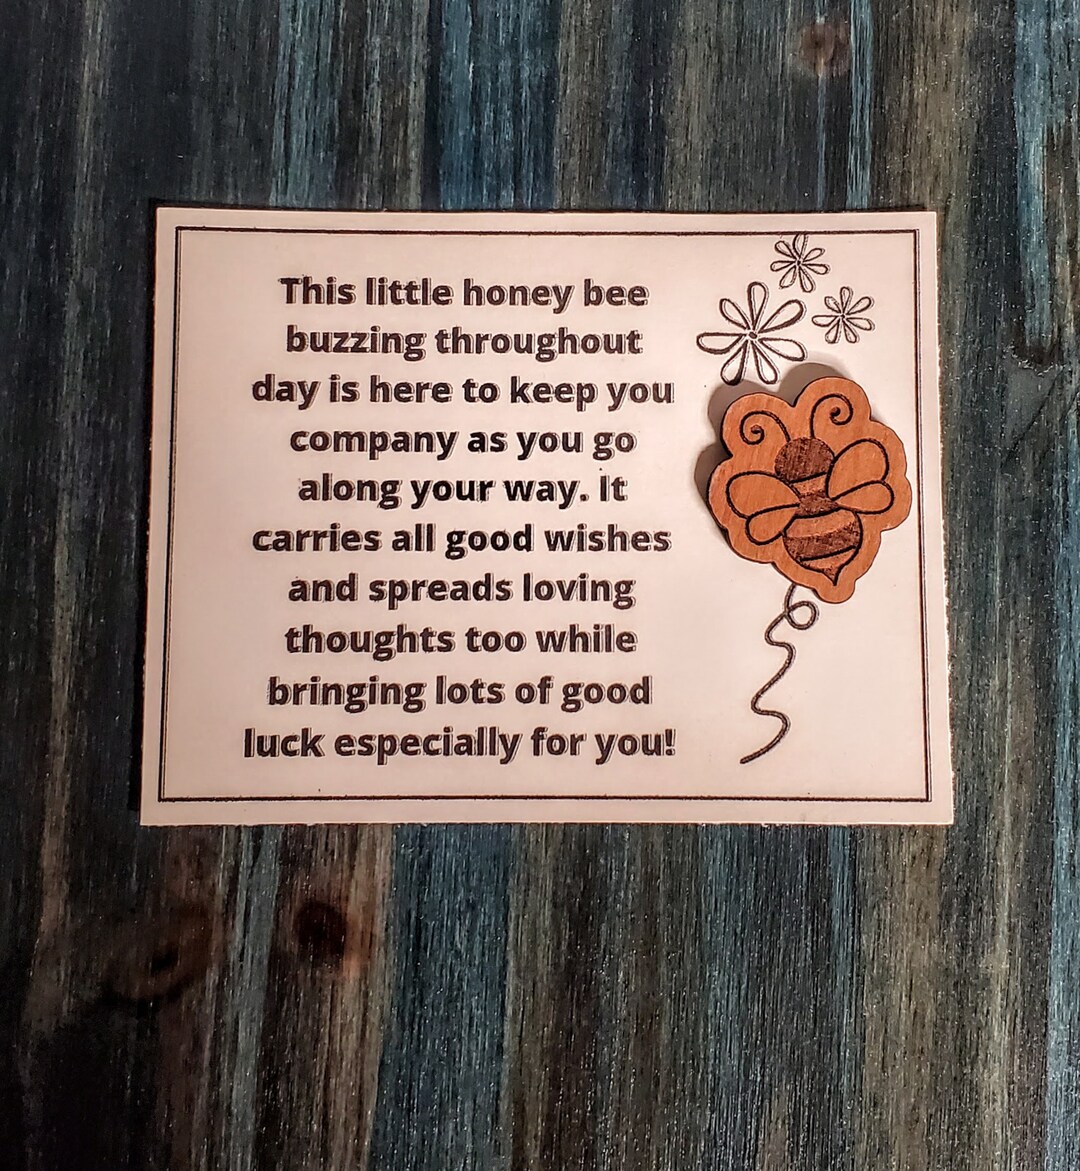 This little honey bee
buzzing throughout
day is here to keep you
company as you go
along your way. It
carries all good wishes
and spreads loving
thoughts too while
bringing lots of good
luck especially for you!